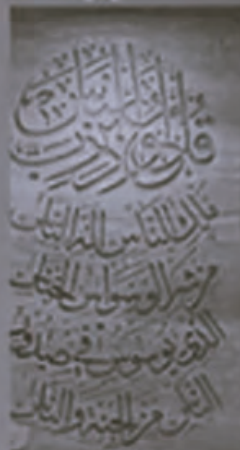 قل أعوذ برب الناس
ملك الناس إله الناس
من شر الوسواس الخناس
الذي يوسوس في صدور
الناس من الجنة والناس